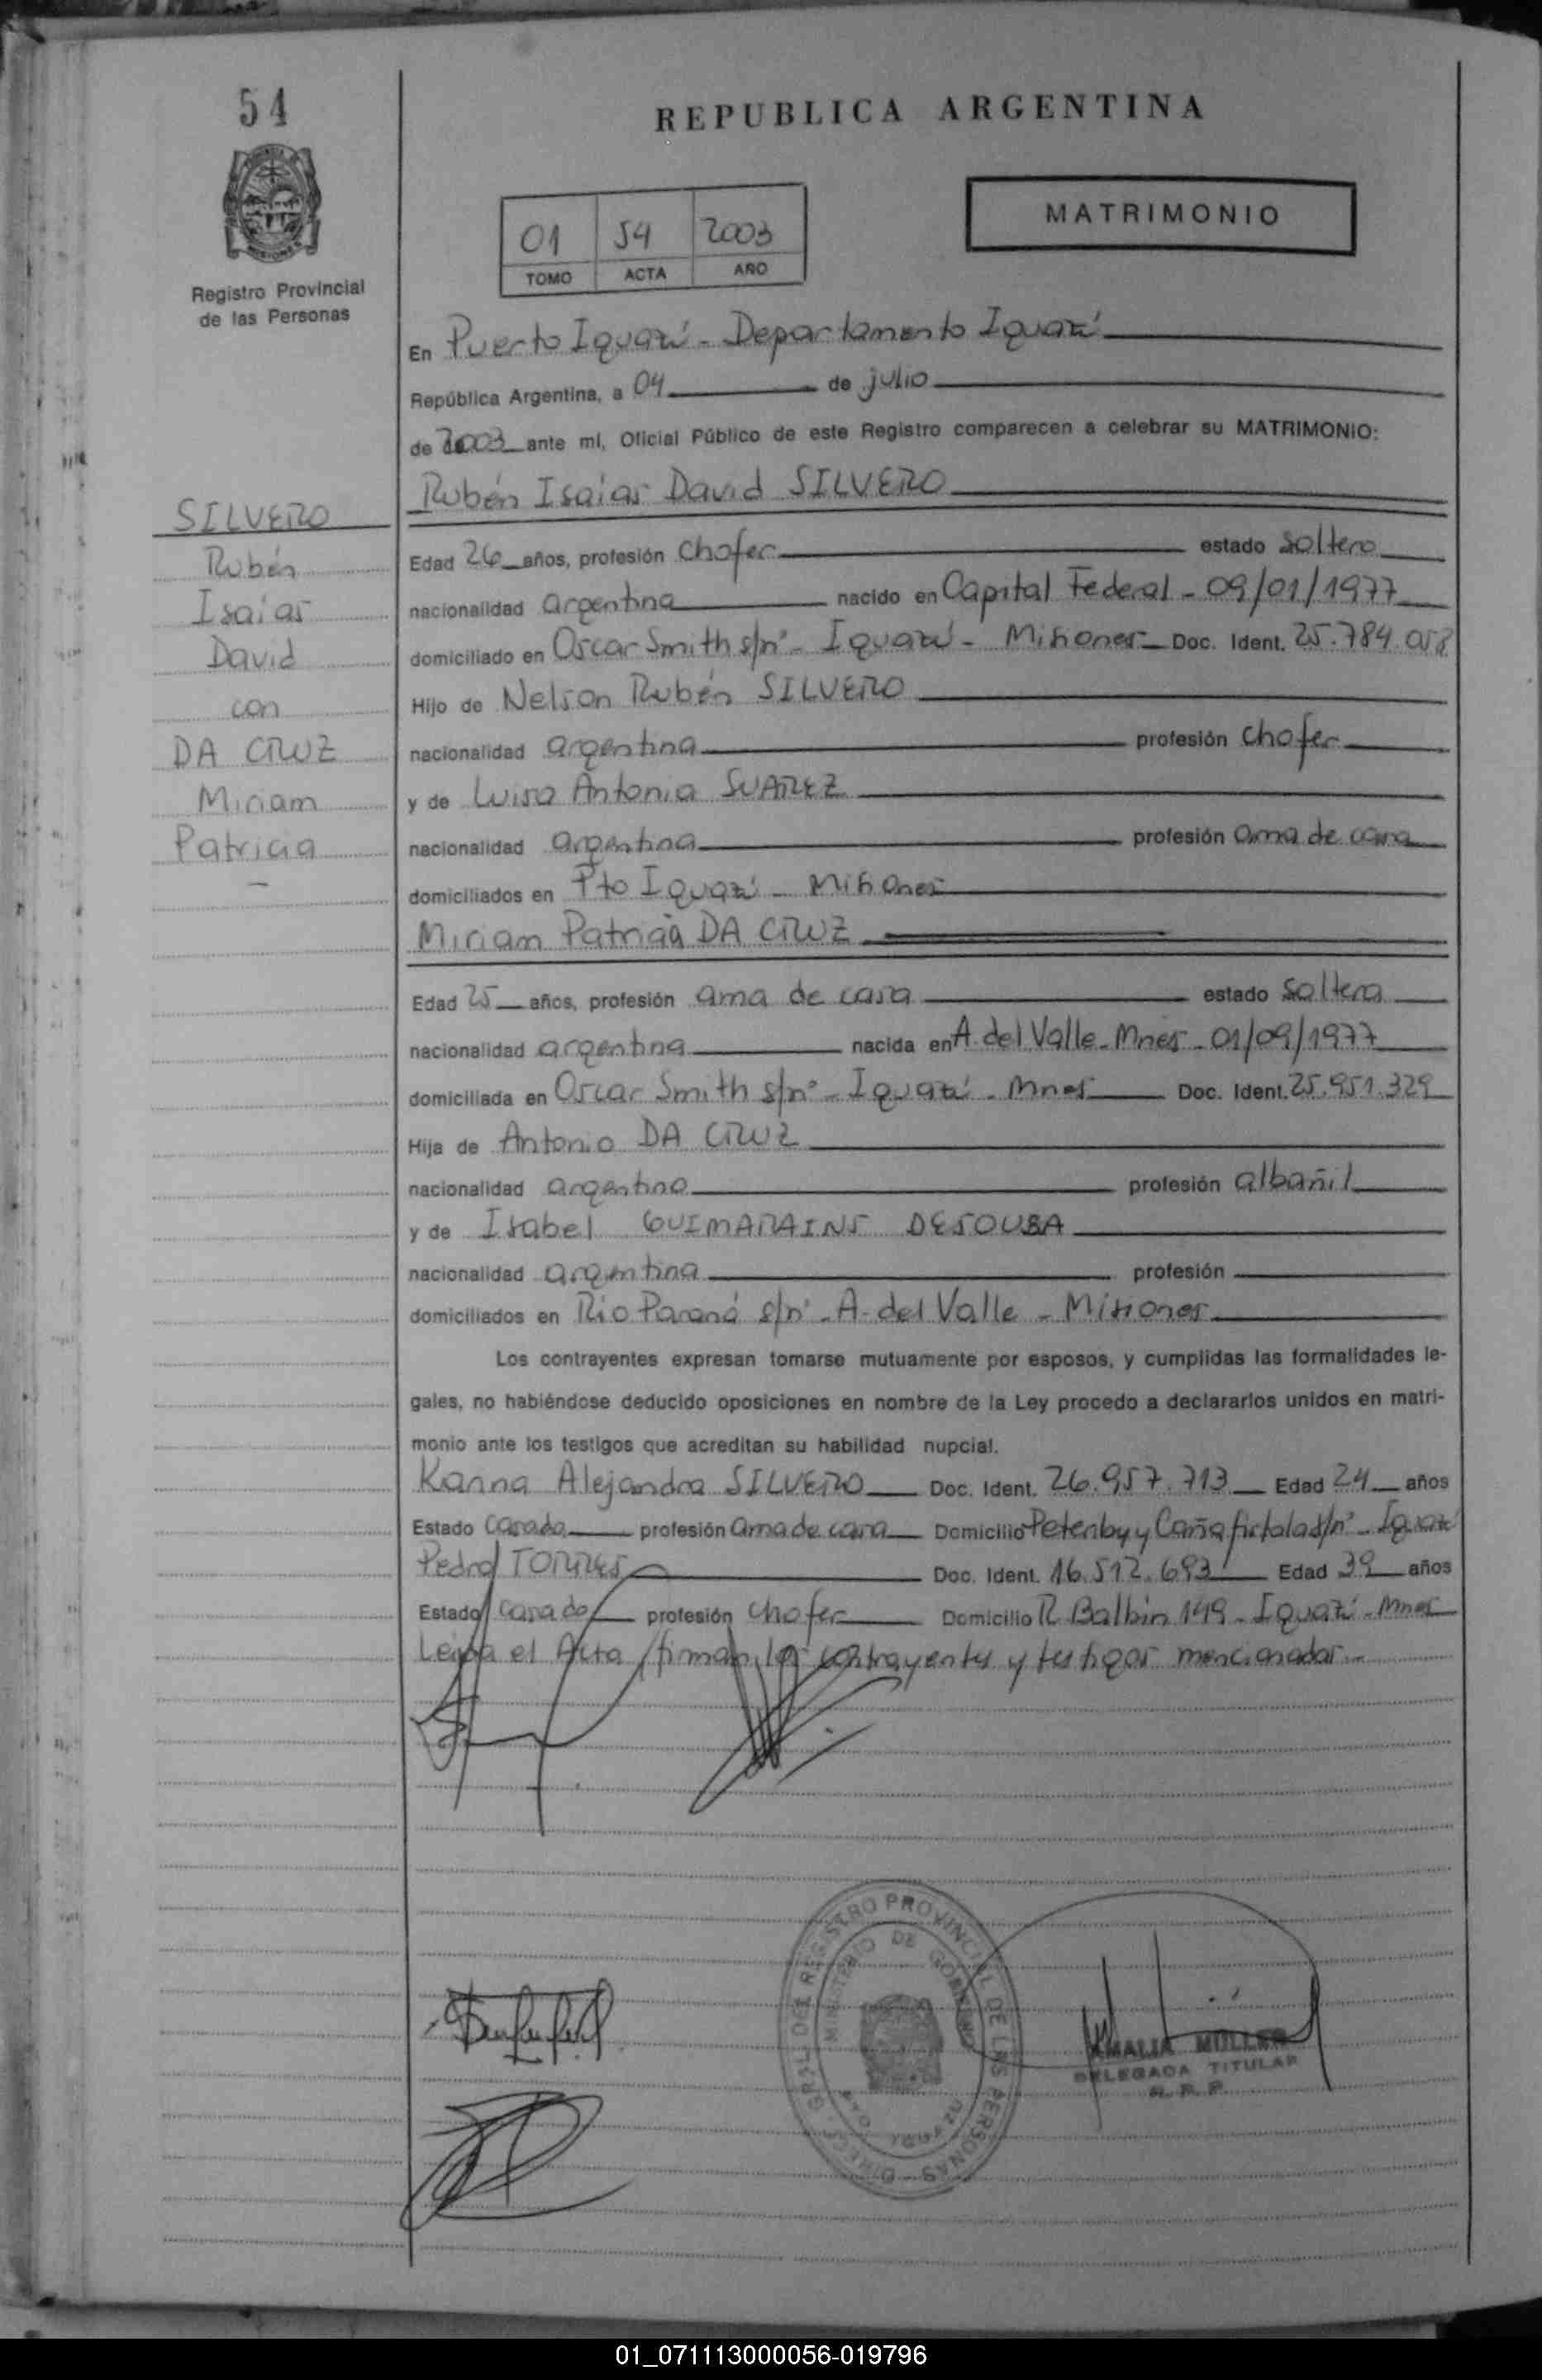 54
REPUBLICA ARGENTINA
MATRIMONIO
01 54 2003
TOMO ACTA AÑO
Registro Provincial
de las Personas
En Puerto Iguazú - Departamento Iguazú
República Argentina, a 04 de julio
de 2003 ante mí, Oficial Público de este Registro comparecen a celebrar su MATRIMONIO:
Rubén Isaías David SILVERO
SILVERO
Rubén
Isaías
David
con
DA CRUZ
Miriam
Patricia
Edad 26 años, profesión chofer estado soltero
nacionalidad argentina nacido en Capital Federal - 09/01/1977
domiciliado en Oscar Smith s/nº - Iguazú - Misiones Doc. Ident. 25.784.058
Hijo de Nelson Rubén SILVERO
nacionalidad argentina profesión chofer
y de Luisa Antonia SUAREZ
nacionalidad argentina profesión ama de casa
domiciliados en Pto Iguazú - Misiones
Miriam Patricia DA CRUZ
Edad 25 años, profesión ama de casa estado soltera
nacionalidad argentina nacida en A. del Valle - Mnes - 01/09/1977
domiciliada en Oscar Smith s/nº - Iguazú - Mnes Doc. Ident. 25.951.329
Hija de Antonio DA CRUZ
nacionalidad argentina profesión albañil
y de Isabel GUIMARAINS DESOUSA
nacionalidad argentina profesión
domiciliados en Rio Paraná s/nº - A. del Valle - Misiones
Los contrayentes expresan tomarse mutuamente por esposos, y cumplidas las formalidades le-
gales, no habiéndose deducido oposiciones en nombre de la Ley procedo a declararlos unidos en matri-
monio ante los testigos que acreditan su habilidad nupcial.
Karina Alejandra SILVERO Doc. Ident. 26.957.713 Edad 24 años
Estado casada profesión ama de casa Domicilio y Caña fistola s/nº - Iguazú
Pedro TORRES Doc. Ident. 16.512.693 Edad 39 años
Estado casado profesión chofer Domicilio R. Balbin 149 - Iguazú - Mnes
Leída el Acta, firman los contrayentes y testigos mencionados.-
DIRECC. GRAL. DEL REGISTRO PROVINCIAL DE LAS PERSONAS
MINISTERIO DE GOBIERNO
PTO. IGUAZU
AMALIA MÜLLER
DELEGADA TITULAR
R. P. P.
01_071113000056-019796